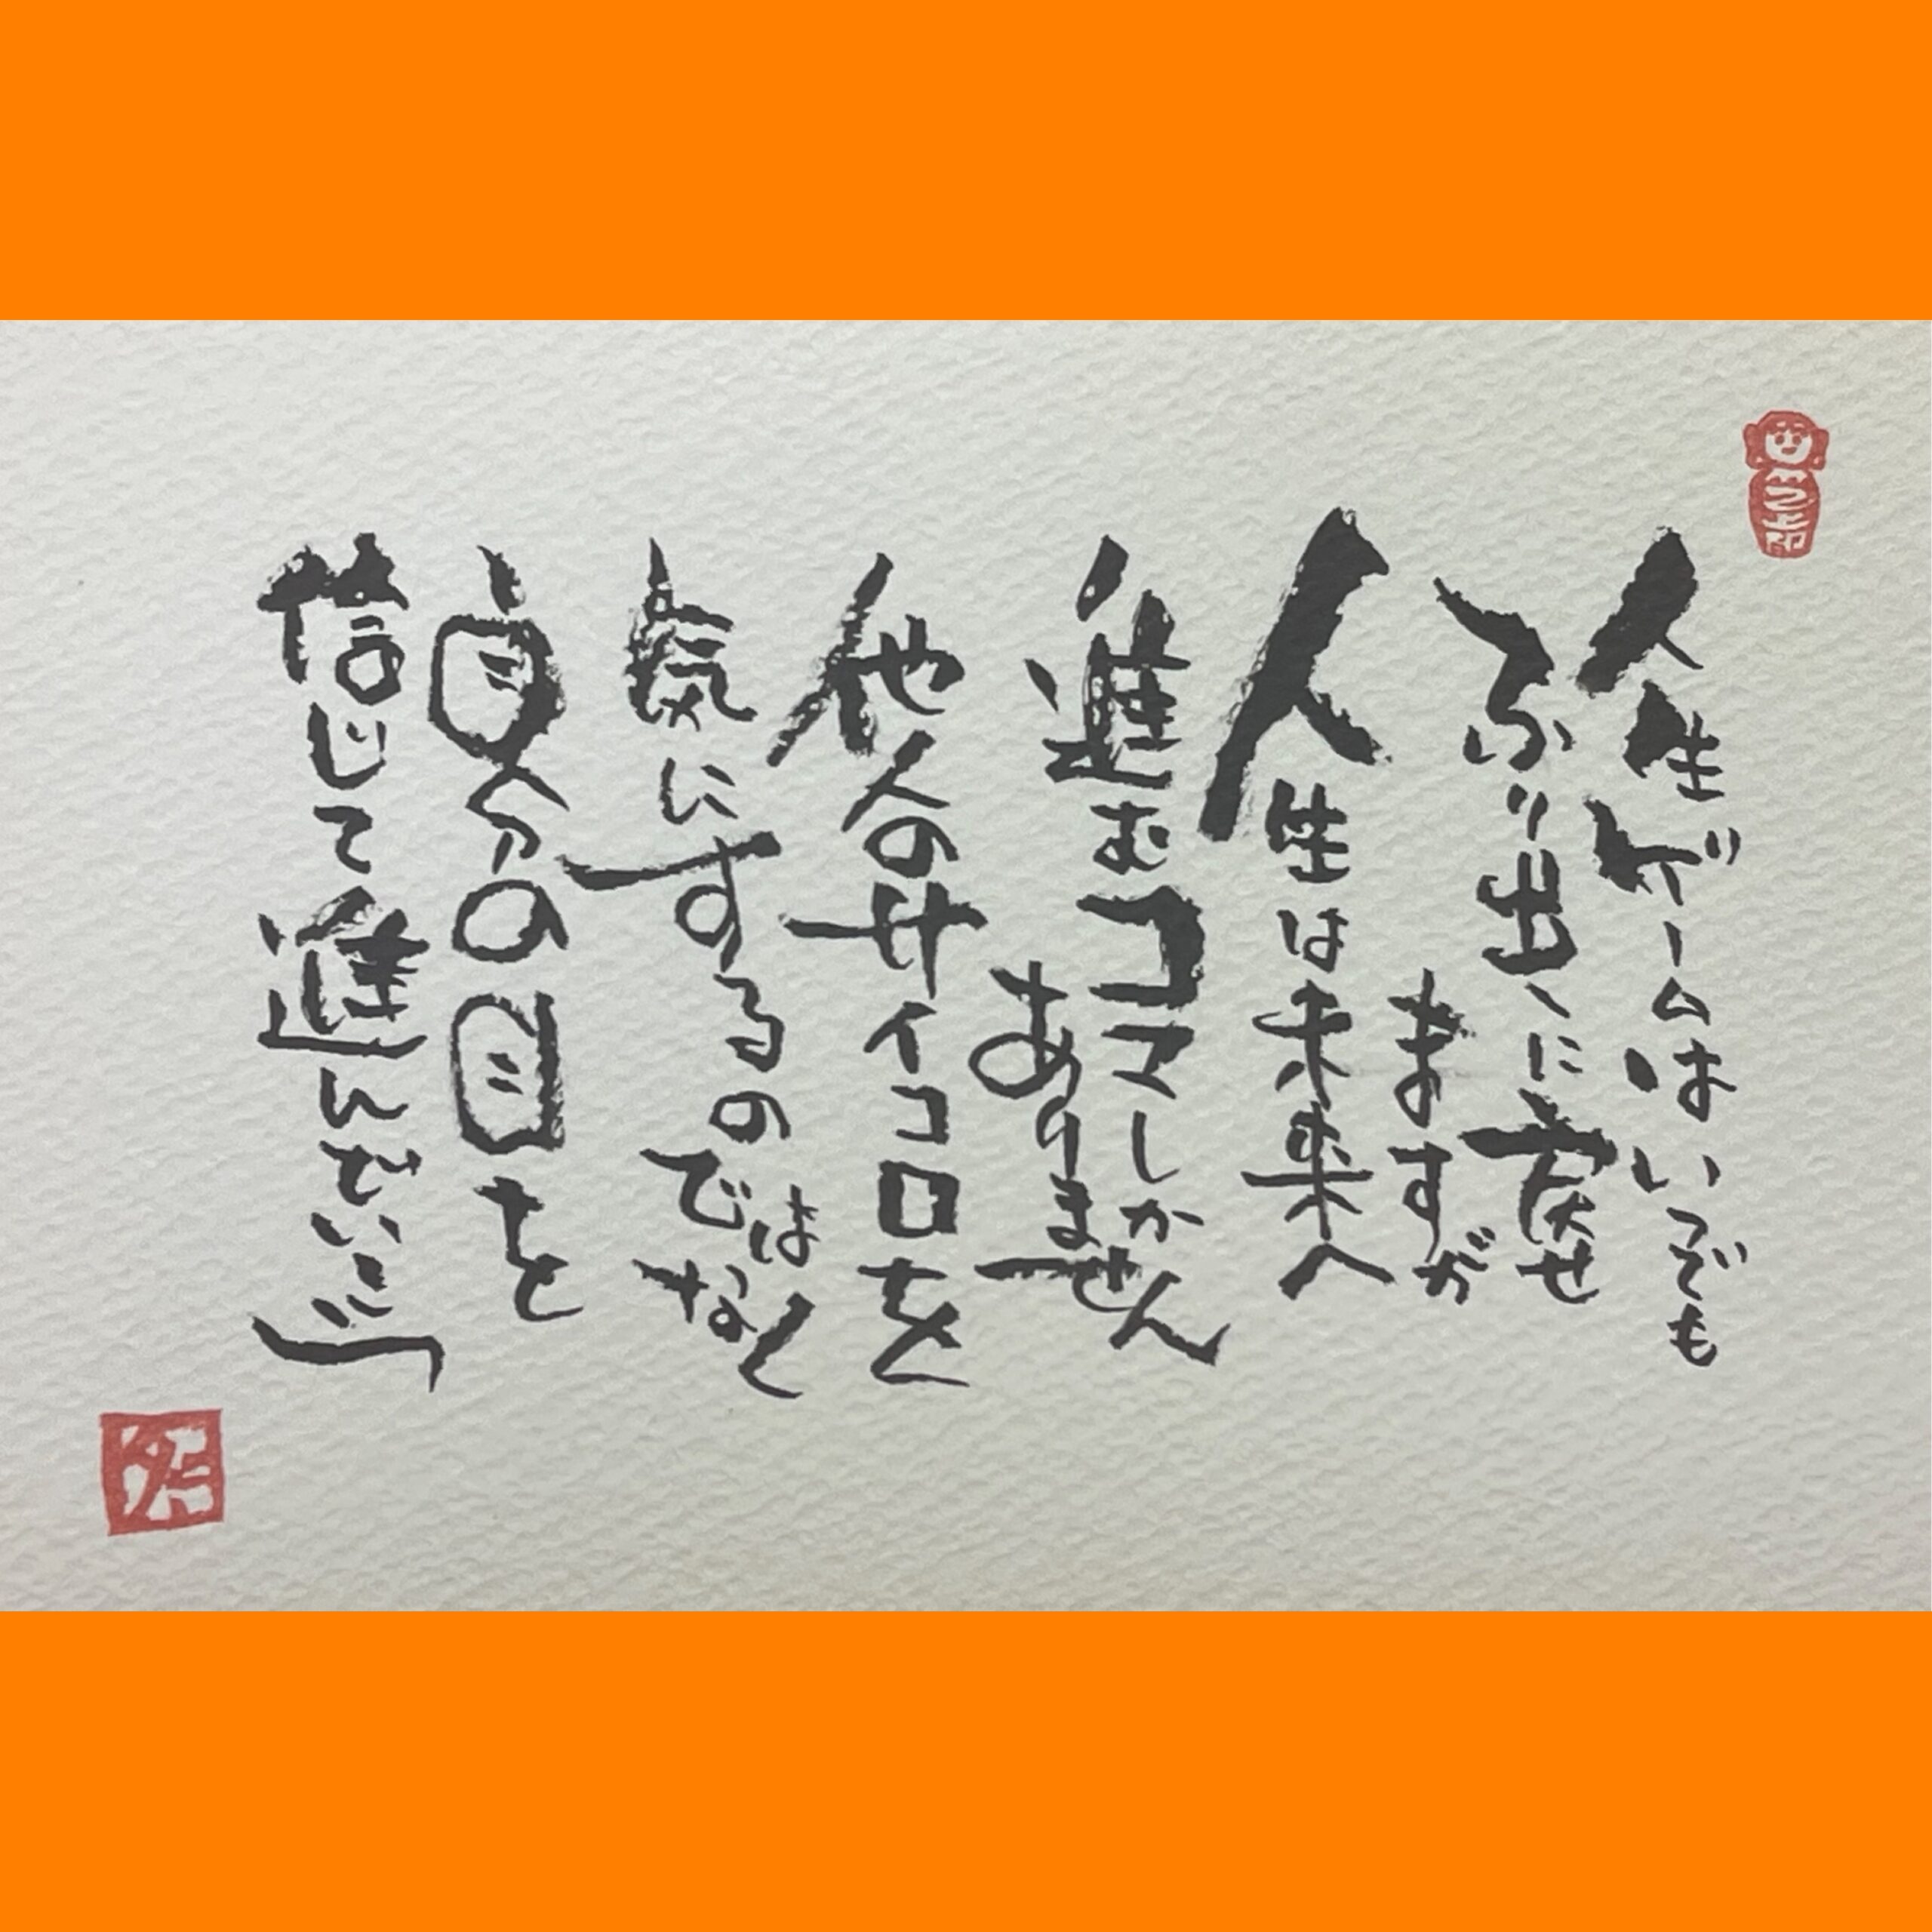 人生ゲームはいつでも
ふり出しに戻せ
ますが
人生は未来へ
進むコマしか
ありません
他人のサイコロを
気にするのではなく
自分の目を
信じて進んでいこう